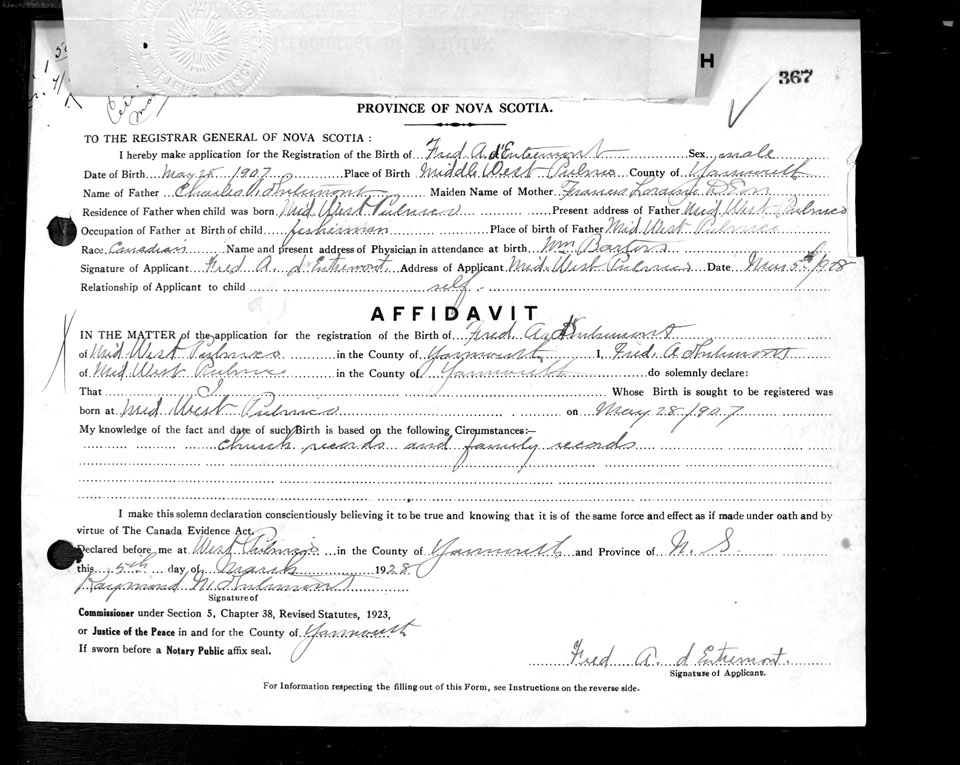 H
367
PROVINCE OF NOVA SCOTIA.
TO THE REGISTRAR GENERAL OF NOVA SCOTIA :
I hereby make application for the Registration of the Birth of Fred A. d'Entremont Sex male
Date of Birth May 28 1907 Place of Birth Middle West Pubnico County of Yarmouth
Name of Father Charles d'Entremont Maiden Name of Mother Frances D'Eon
Residence of Father when child was born Mid West Pubnico Present address of Father Mid West Pubnico
Occupation of Father at Birth of child fisherman Place of birth of Father Mid West Pubnico
Race Canadian Name and present address of Physician in attendance at birth Wm
Signature of Applicant Fred A. d'Entremont Address of Applicant Mid. West Pubnico Date Mar 5th 1928
Relationship of Applicant to child self -
AFFIDAVIT
IN THE MATTER of the application for the registration of the Birth of Fred. A. d'Entremont
of Mid West Pubnico in the County of Yarmouth I, Fred. A d'Entremont
of Mid West Pubnico in the County of Yarmouth do solemnly declare:
That I Whose Birth is sought to be registered was
born at Mid West Pubnico on May 28 1907
My knowledge of the fact and date of such Birth is based on the following Circumstances:—
church records and family records
I make this solemn declaration conscientiously believing it to be true and knowing that it is of the same force and effect as if made under oath and by
virtue of The Canada Evidence Act.
Declared before me at West Pubnico in the County of Yarmouth and Province of N. S.
this 5th day of March 1928
Raymond N. d'Entremont
Signature of
Commissioner under Section 5, Chapter 38, Revised Statutes, 1923,
or Justice of the Peace in and for the County of Yarmouth
If sworn before a Notary Public affix seal.
Fred A. d'Entremont.
Signature of Applicant.
For Information respecting the filling out of this Form, see Instructions on the reverse side.